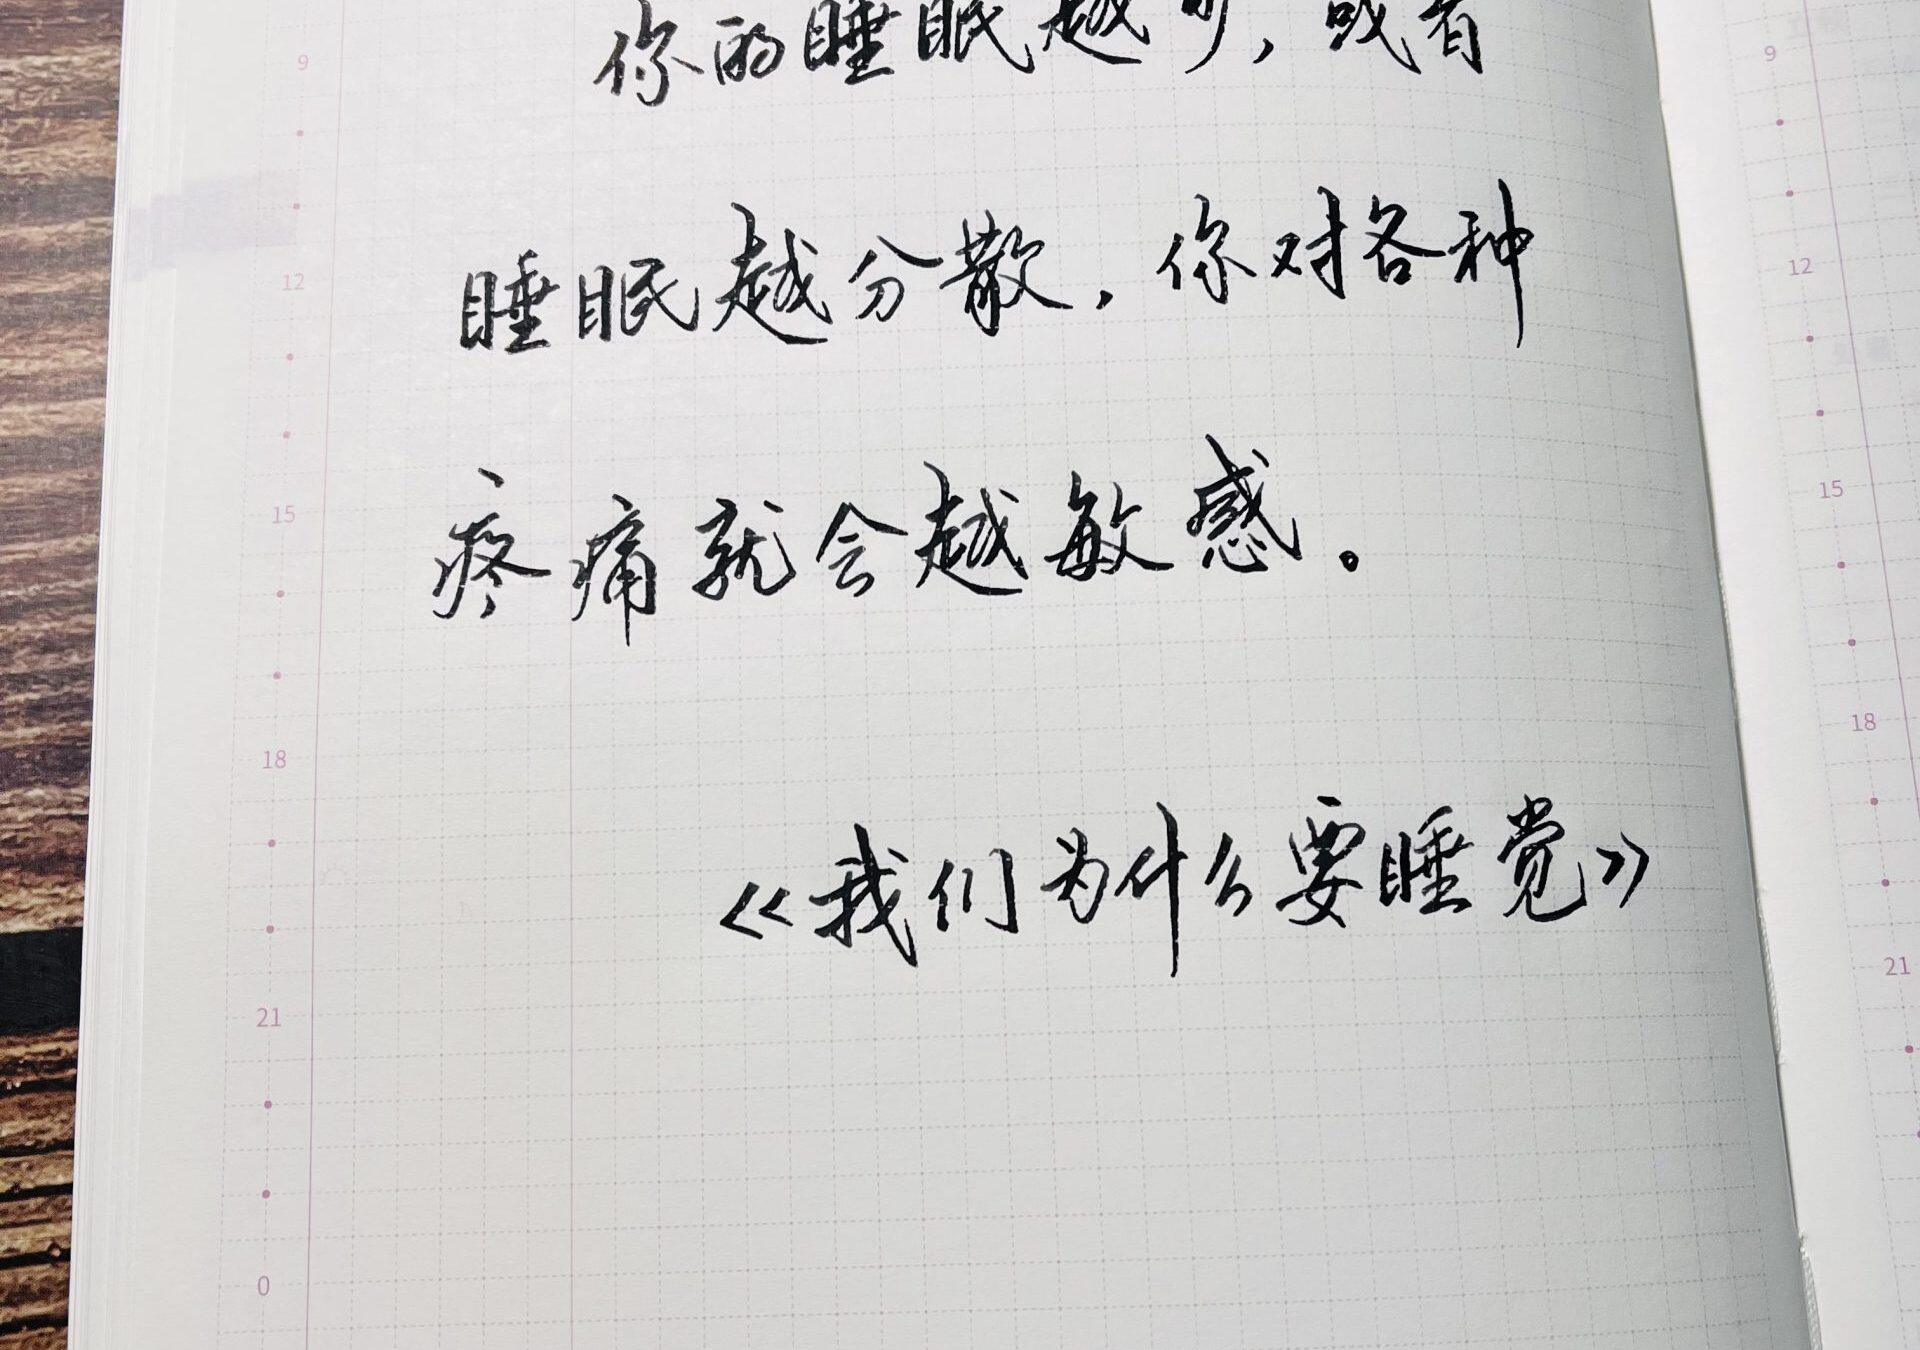 你的睡眠越少，或者
睡眠越分散，你对各种
疼痛就会越敏感。
《我们为什么要睡觉》
9
12
15
18
21
0
9
12
15
18
21